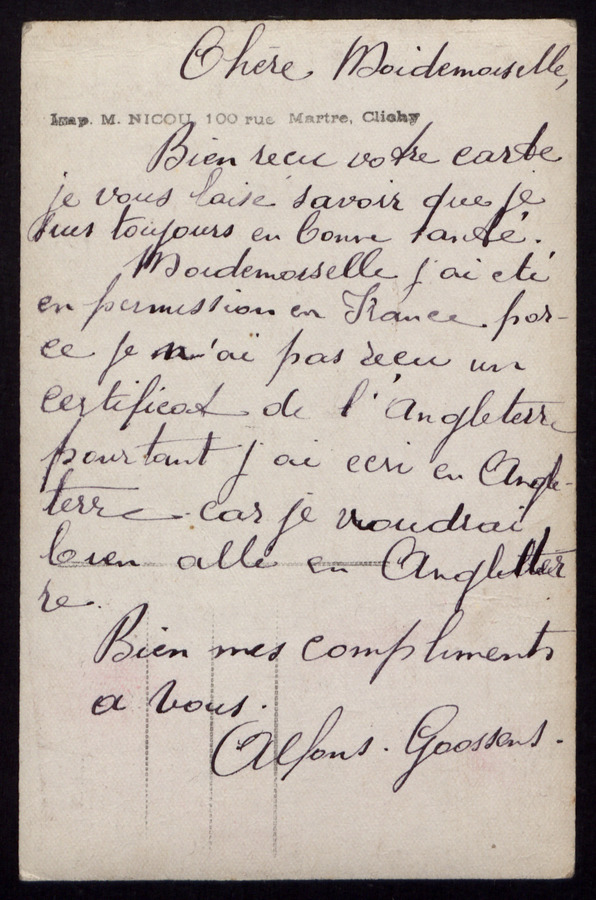 Chère Moidemoiselle,
Imp. M. NICOU, 100 rue Martre, Clichy
Bien recu votre carte
je vous laise savoir que je
suis toujours en bonne santé.
Moidemoiselle j'ai eté
en permission en France por-
ce je n'ai pas recu un
certificat de l'Angleterre
pourtant j'ai ecri en Angle-
terre car je voudrai
bien allé en Angletter
re.
Bien mes compliments
a vous.
Alfons. Goossens.